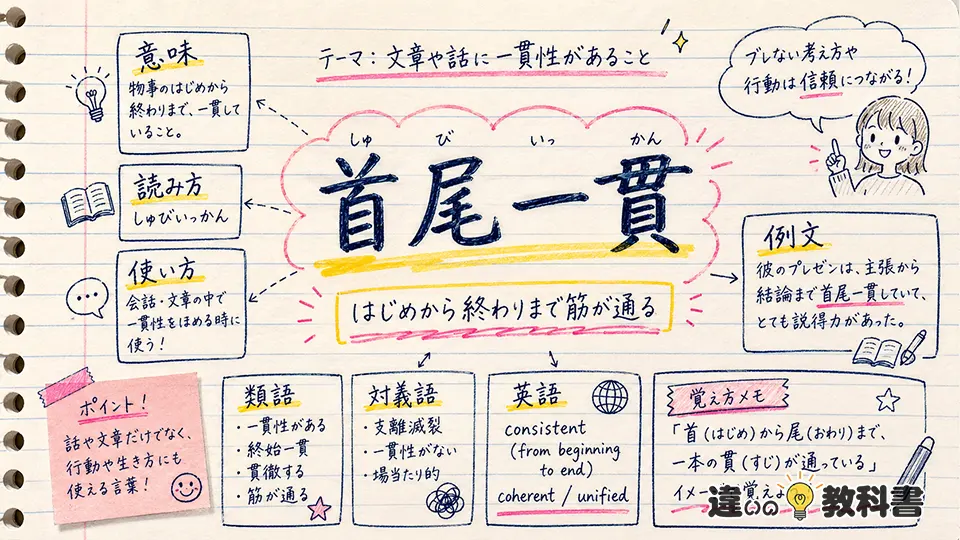 テーマ：文章や話に一貫性があること
ブレない考え方や
行動は信頼につながる！
意味
物事のはじめから
終わりまで、一貫して
いること。
読み方
しゅびいっかん
使い方
会話・文章の中で
一貫性をほめる時に
使う！
しゅ び いっ かん
首尾一貫
はじめから終わりまで筋が通る
例文
彼のプレゼンは、主張から
結論まで首尾一貫していて、
とても説得力があった。
ポイント！
話や文章だけでなく、
行動や生き方にも
使える言葉！
類語
・一貫性がある
・終始一貫
・貫徹する
・筋が通る
対義語
・支離滅裂
・一貫性がない
・場当たり的
英語
consistent
(from beginning
to end)
coherent / unified
覚え方メモ
「首(はじめ)から尾(おわり)まで、
一本の貫(すじ)が通っている」
イメ 覚え
違いの教科書